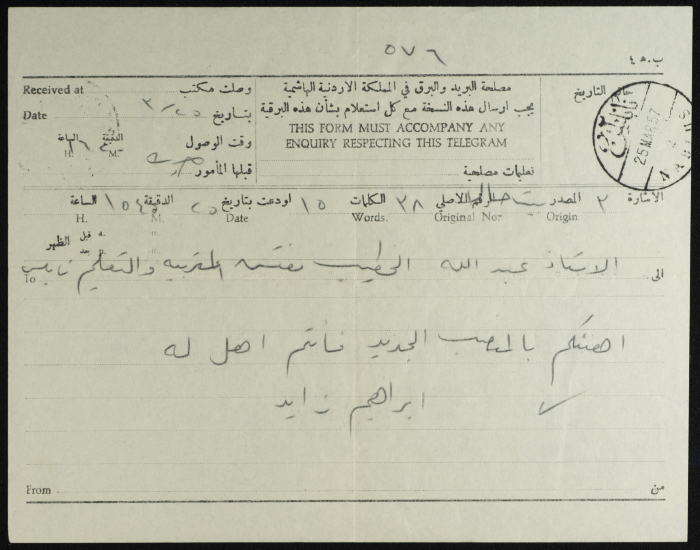 ٥٧٦
ب.ه ٤
Received at
وصلت مكتب
مصلحة البريد والبرق في المملكة الاردنية الهاشمية
خاتم التاريخ
Date
بتاريخ ٣/٢٥
يجب ارسال هذه النسخة مع كل استعلام بشأن هذه البرقية
THIS FORM MUST ACCOMPANY ANY
ENQUIRY RESPECTING THIS TELEGRAM
25 MAR 57
NABLUS
نابلس
الساعة
الدقيقة
وقت الوصول
H.
M.
قبلها المأمور
تعليمات مصلحية
الاشارة ٢
المصدر
الرقم الاصلي
٢٨ الكلمات
١٥ اودعت بتاريخ
٢٥ الدقيقة
الساعة
H.
M.
Date
Words.
Original No.
Origin
قبل
بعد
الظهر
الى
To
الاستاذ عبد الله الخطيب مفتش التربيه والتعليم نابلس
اهنئكم بالمنصب الجديد فأنتم اهل له
ابراهيم زايد
From
من